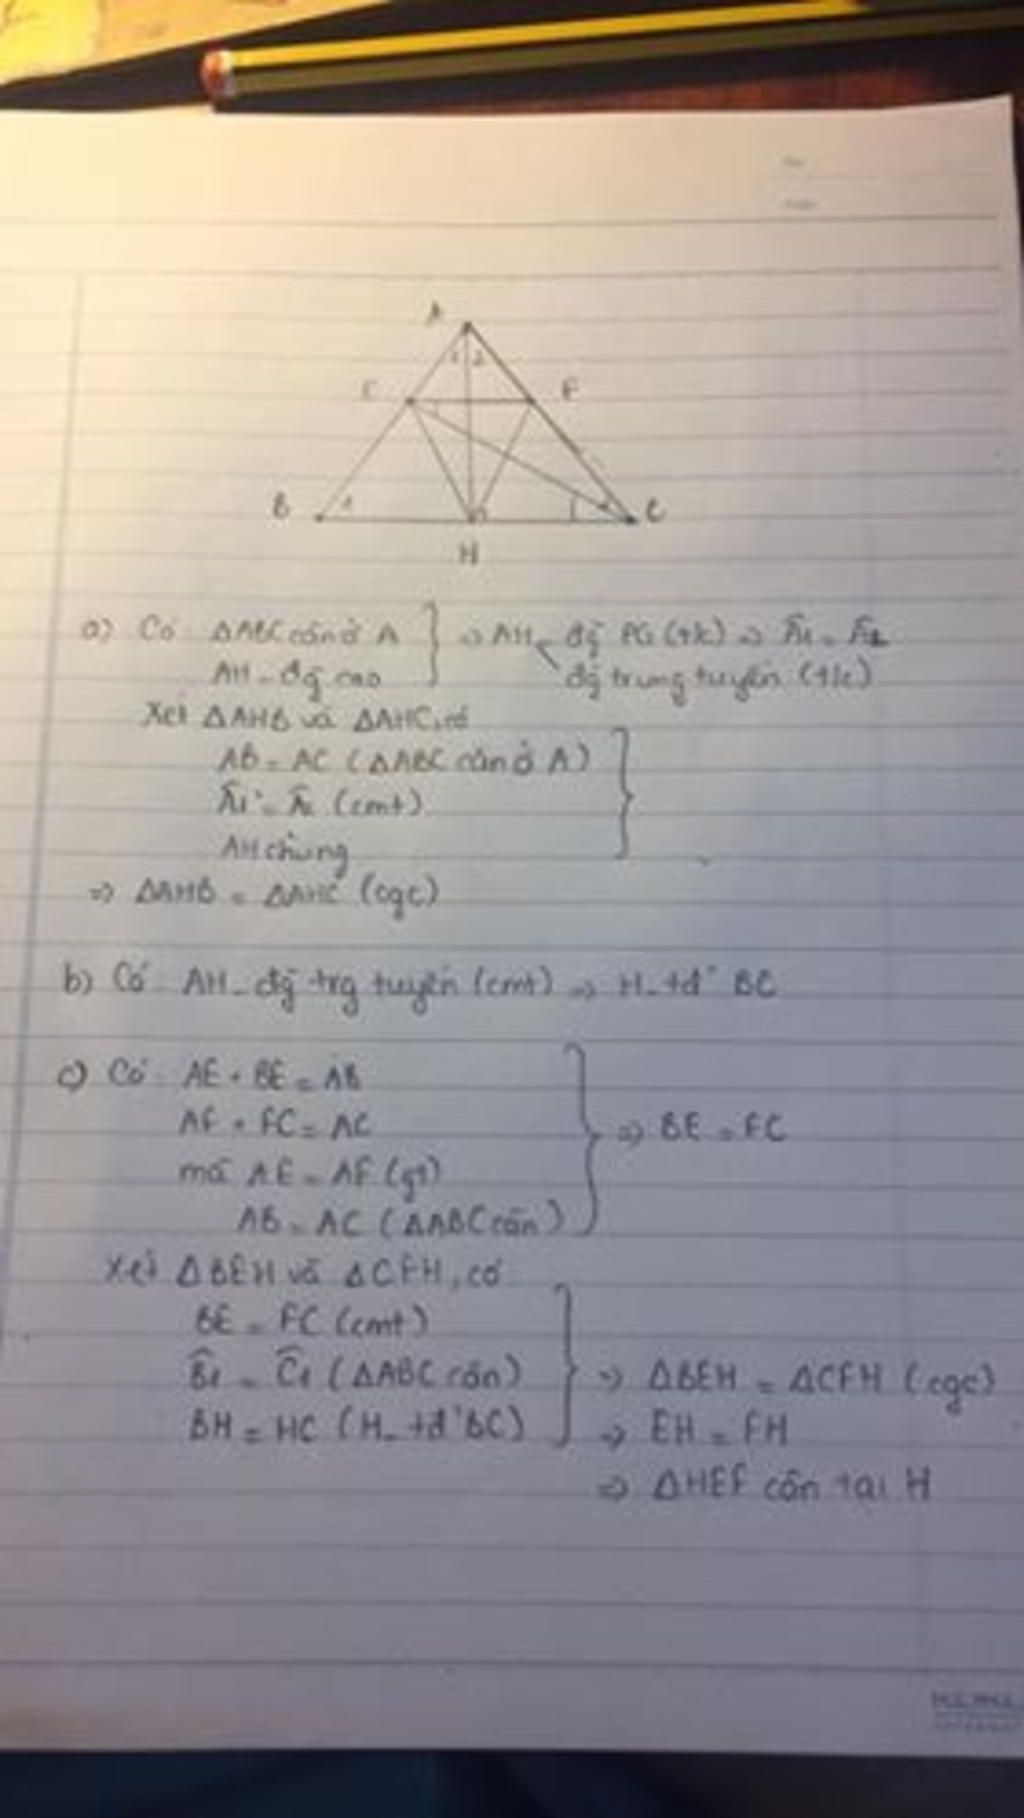 A
1 2
E F
B 1 C
H
a) Có ΔABC cân ở A } => AH < đg PG (t/c) => Â1 = Â2
AH - đg cao đg trung tuyến (t/c)
Xét ΔAHB và ΔAHC, có
AB = AC (ΔABC cân ở A)
Â1 = Â2 (cmt)
AH chung
=> ΔAHB = ΔAHC (cgc)
b) Có AH - đg trg tuyến (cmt) => H - tđ' BC
c) Có AE + BE = AB
AF + FC = AC => BE = FC
mà AE = AF (gt)
AB = AC (ΔABC cân)
Xét ΔBEH và ΔCFH, có
BE = FC (cmt)
B̂1 = Ĉ1 (ΔABC cân) => ΔBEH = ΔCFH (cgc)
BH = HC (H - tđ' BC) => EH = FH
=> ΔHEF cân tại H